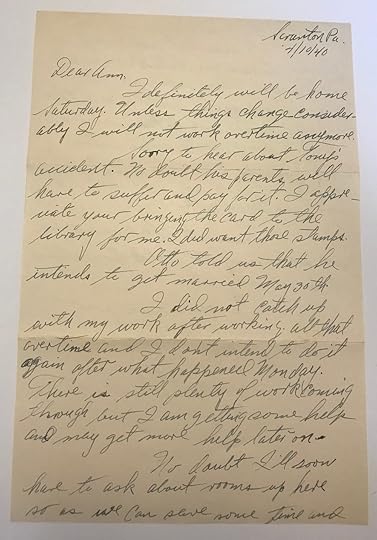 Scranton Pa.
4/10/40
Dear Ann.
I definitely will be home
Saturday. Unless things change consider-
ably I will not work overtime anymore.
Sorry to hear about Tony's
accident. No doubt his parents will
have to suffer and pay for it. I appre-
ciate your bringing the card to the
library for me. I did want those stamps.
Otto told us that he
intends to get married May 30th
I did not catch up
with my work after working all that
overtime and I don't intend to do it
again after what happened Monday.
There is still plenty of work coming
through but I am getting some help
and may get more help later on.
No doubt I'll soon
have to ask about rooms up here
so as we can save some time and